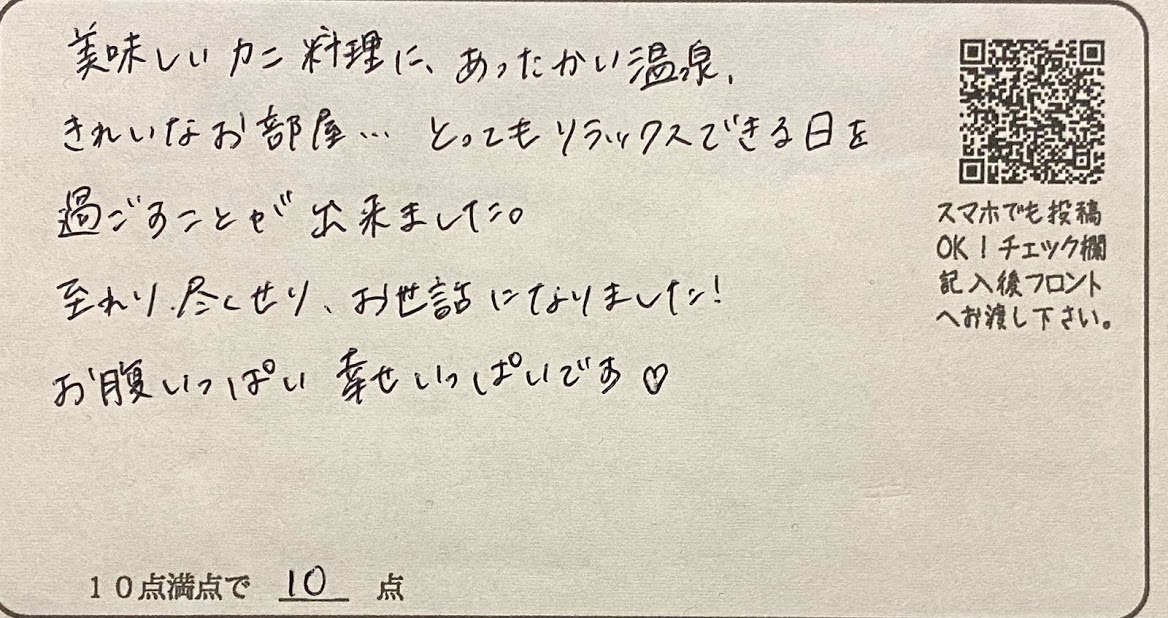 美味しいカニ料理に、あったかい温泉、
きれいなお部屋… とってもリラックスできる日を
過ごすことが出来ました。
至れり、尽くせり、お世話になりました!
お腹いっぱい 幸せいっぱいです♡
スマホでも投稿
OK!チェック欄
記入後フロント
へお渡し下さい。
10点満点で 10 点